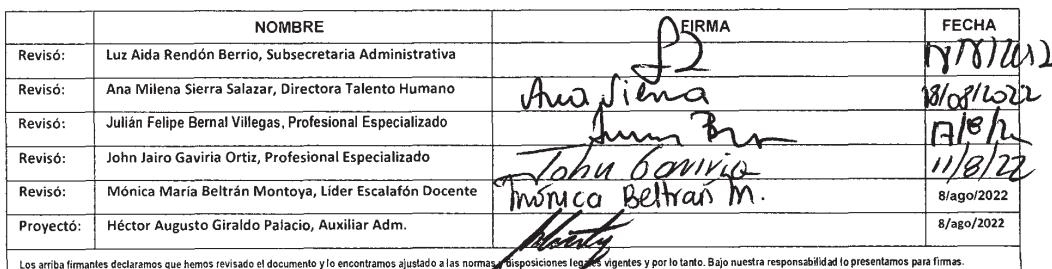 NOMBRE FIRMA FECHA
Revisó: Luz Aida Rendón Berrio, Subsecretaria Administrativa
Revisó: Ana Milena Sierra Salazar, Directora Talento Humano Ana Sierra 18/08/2022
Revisó: Julián Felipe Bernal Villegas, Profesional Especializado 17/8/22
Revisó: John Jairo Gaviria Ortiz, Profesional Especializado John Gaviria 11/8/22
Revisó: Mónica María Beltrán Montoya, Líder Escalafón Docente Mónica Beltrán M. 8/ago/2022
Proyectó: Héctor Augusto Giraldo Palacio, Auxiliar Adm. 8/ago/2022
Los arriba firmantes declaramos que hemos revisado el documento y lo encontramos ajustado a las normas y disposiciones legales vigentes y por lo tanto. Bajo nuestra responsabilidad lo presentamos para firmas.